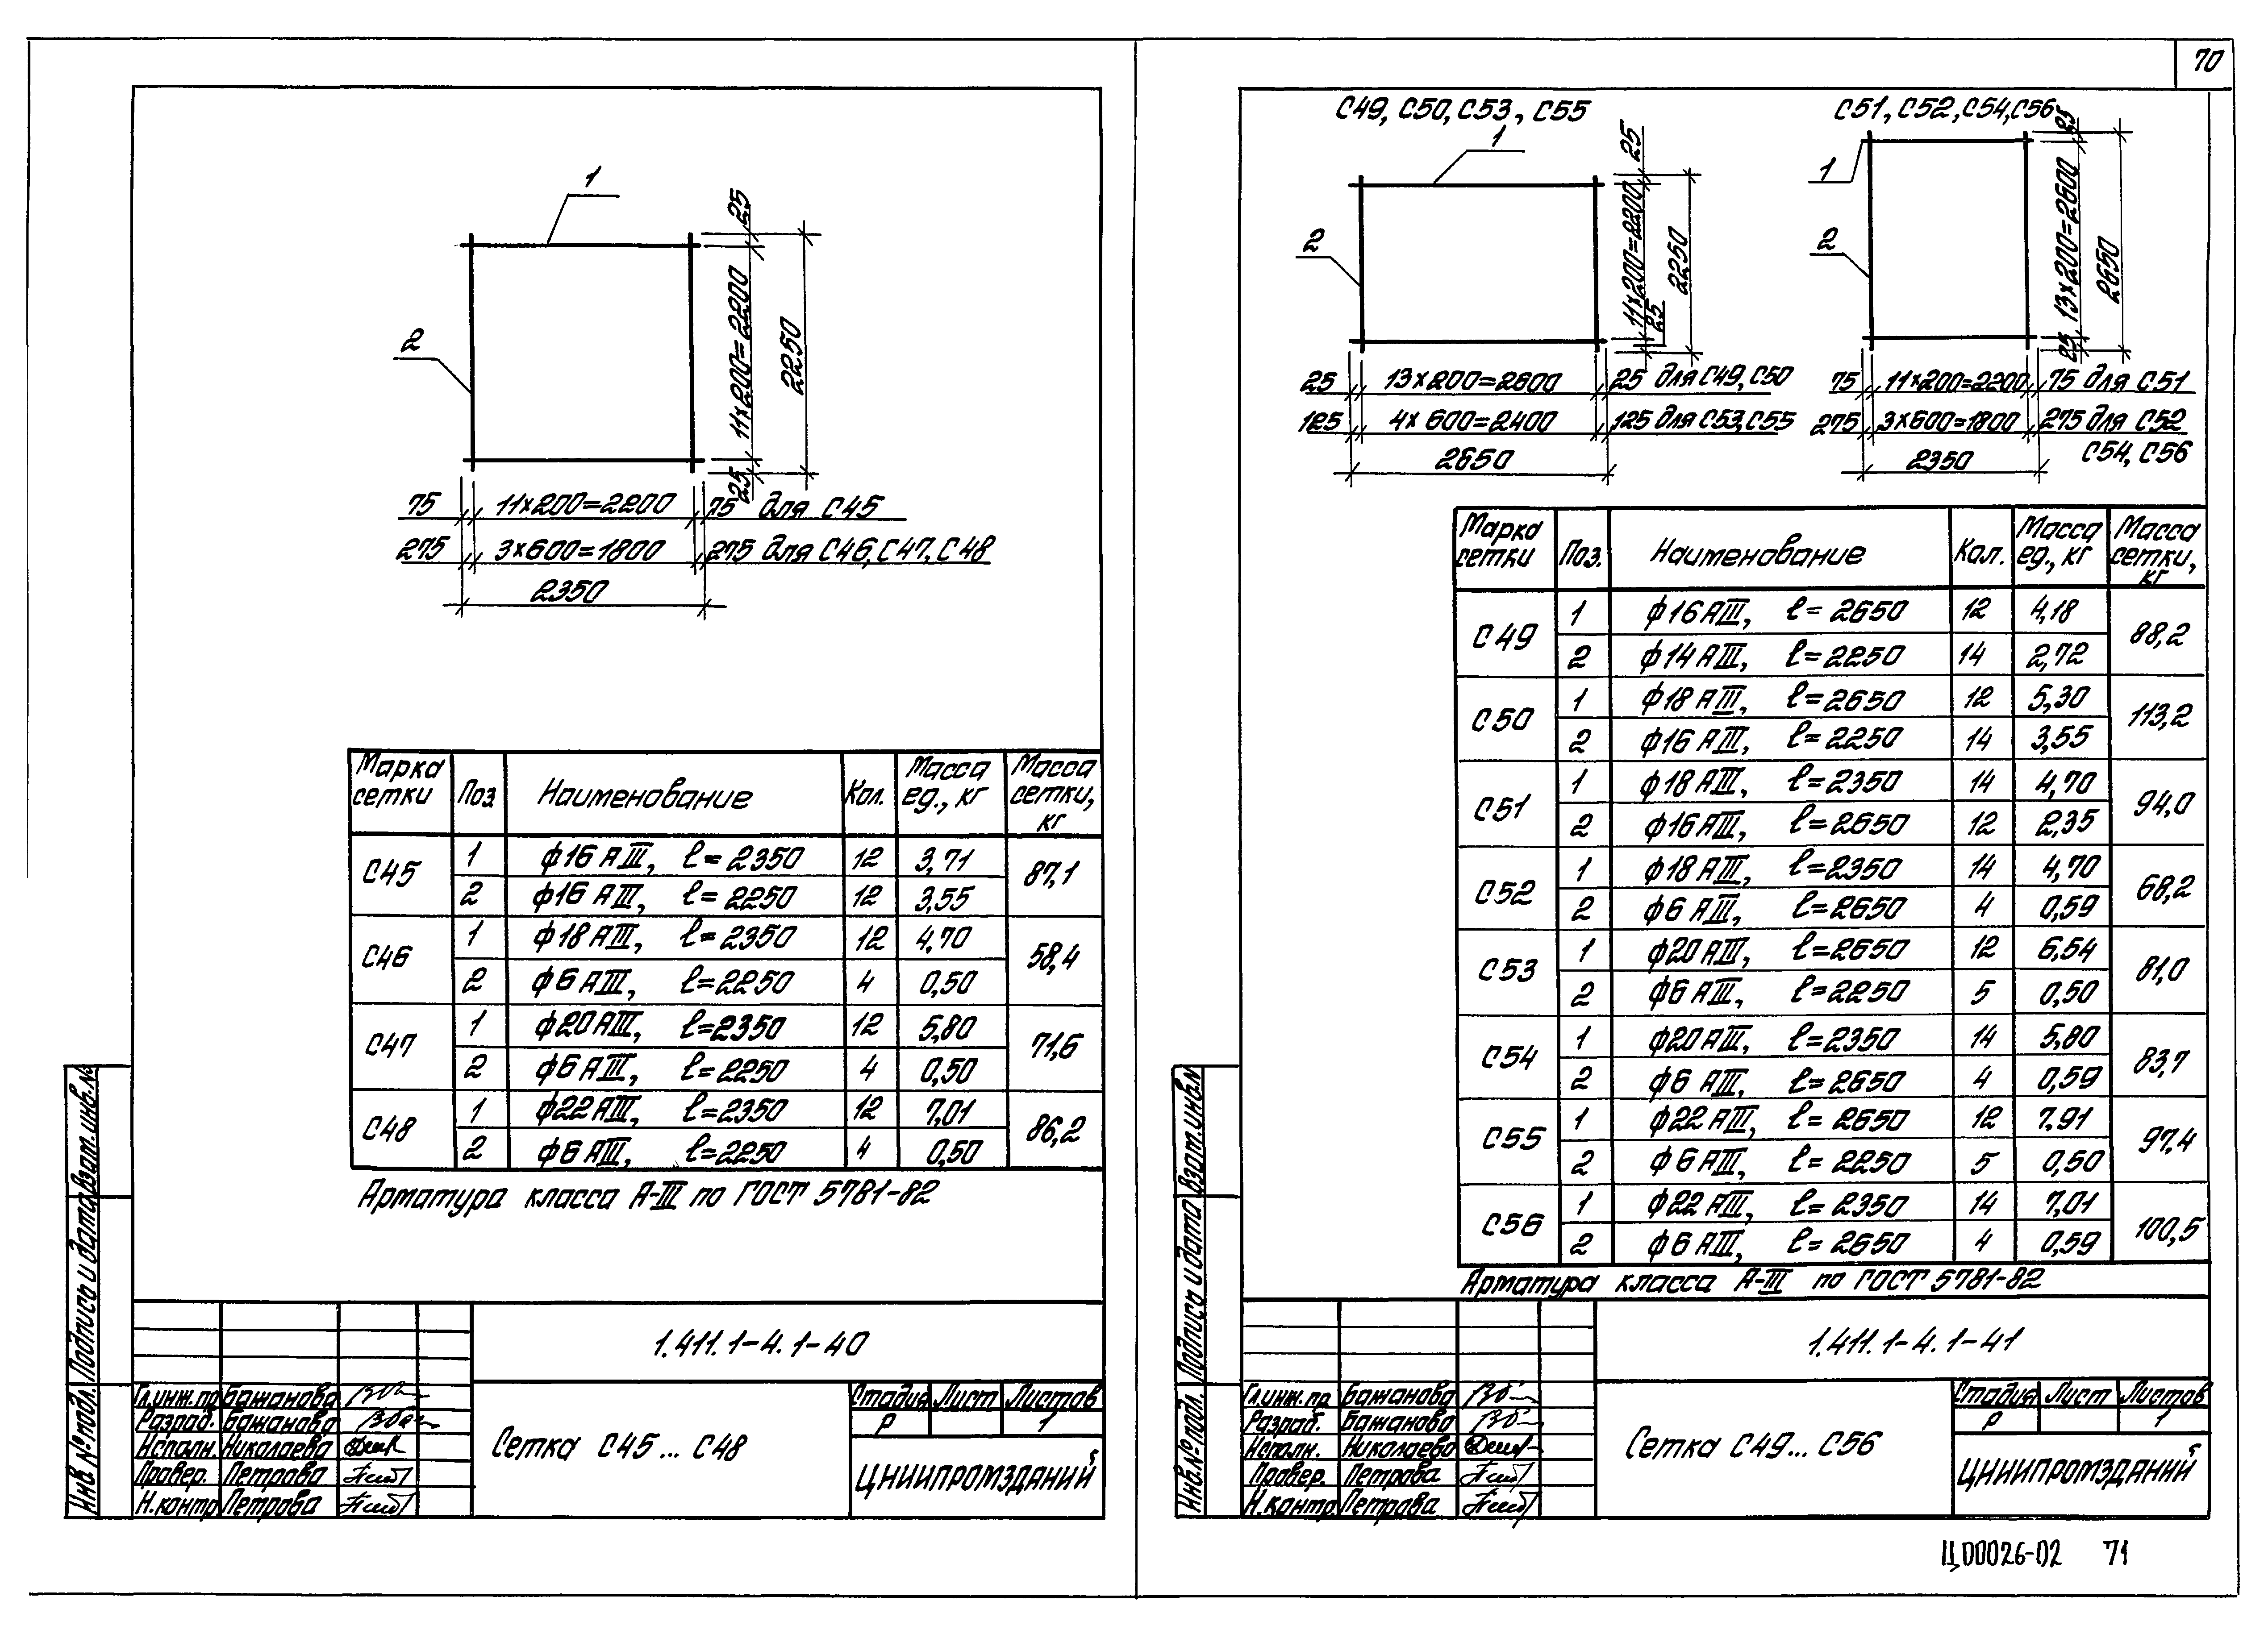 70
1
2
25
11×200=2200
25
2250
75 11×200=2200 75 для С45
275 3×600=1800 275 для С46, С47, С48
2350
Марка сетки Поз Наименование Кол. Масса ед., кг Масса сетки, кг
С45 1 ф16 АIII, ℓ=2350 12 3,71 87,1
2 ф16 АIII, ℓ=2250 12 3,55
С46 1 ф18 АIII, ℓ=2350 12 4,70 58,4
2 ф6 АIII, ℓ=2250 4 0,50
С47 1 ф20 АIII, ℓ=2350 12 5,80 71,6
2 ф6 АIII, ℓ=2250 4 0,50
С48 1 ф22 АIII, ℓ=2350 12 7,01 86,2
2 ф6 АIII, ℓ=2250 4 0,50
Арматура класса А-III по ГОСТ 5781-82
1.411.1-4.1-40
Гл.инж.пр Бажанова
Разраб. Бажанова
Исполн. Николаева
Провер. Петрова
Н.контр Петрова
Сетка С45... С48
Стадия Лист Листов
Р 1
ЦНИИПРОМЗДАНИЙ
Инв.№подл. Подпись и дата Взам.инв.№
С49, С50, С53, С55
1
2
25
11×200=2200
25
2250
25 13×200=2600 25 для С49, С50
125 4×600=2400 125 для С53, С55
2650
С51, С52, С54, С56
1
2
25
13×200=2600
25
2650
75 11×200=2200 75 для С51
275 3×600=1800 275 для С52
С54, С56
2350
Марка сетки Поз. Наименование Кол. Масса ед., кг Масса сетки, кг
С49 1 ф16 АIII, ℓ=2650 12 4,18 88,2
2 ф14 АIII, ℓ=2250 14 2,72
С50 1 ф18 АIII, ℓ=2650 12 5,30 113,2
2 ф16 АIII, ℓ=2250 14 3,55
С51 1 ф18 АIII, ℓ=2350 14 4,70 94,0
2 ф16 АIII, ℓ=2650 12 2,35
С52 1 ф18 АIII, ℓ=2350 14 4,70 68,2
2 ф6 АIII, ℓ=2650 4 0,59
С53 1 ф20 АIII, ℓ=2650 12 6,54 81,0
2 ф6 АIII, ℓ=2250 5 0,50
С54 1 ф20 АIII, ℓ=2350 14 5,80 83,7
2 ф6 АIII, ℓ=2650 4 0,59
С55 1 ф22 АIII, ℓ=2650 12 7,91 97,4
2 ф6 АIII, ℓ=2250 5 0,50
С56 1 ф22 АIII, ℓ=2350 14 7,01 100,5
2 ф6 АIII, ℓ=2650 4 0,59
Арматура класса А-III по ГОСТ 5781-82
1.411.1-4.1-41
Гл.инж.пр Бажанова
Разраб. Бажанова
Исполн. Николаева
Провер. Петрова
Н.контр. Петрова
Сетка С49... С56
Стадия Лист Листов
Р 1
ЦНИИПРОМЗДАНИЙ
Инв.№подл. Подпись и дата Взам.инв.№
Ц00026-02 71